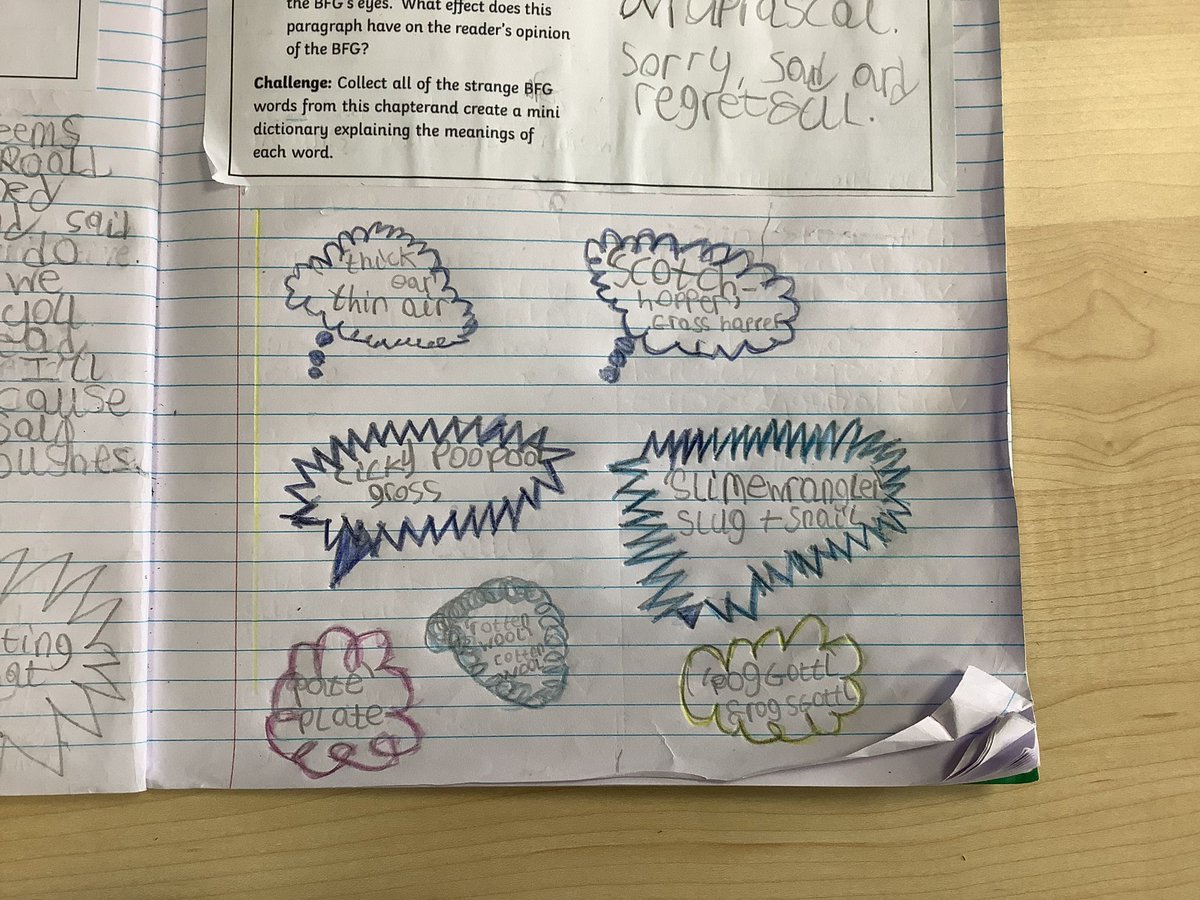 eems
Roald
ed
d, said
do
we
you
ead
I'll
cause
Say
bushes.
ting
at
the BFG's eyes. What effect does this
paragraph have on the reader's opinion
of the BFG?
Challenge: Collect all of the strange BFG
words from this chapterand create a mini
dictionary explaining the meanings of
each word.
Sorry, sad and
regretful.
'thick
ear'
thin air
'Scotch-
hopper'
Grass hopper
'icky poopoo'
gross
'Slimewrangler'
Slug + Snail
'rotten
wool'
cotten
wool
'pate'
plate